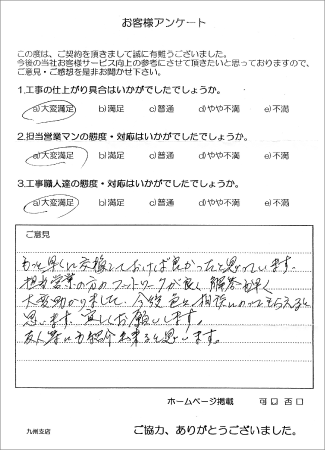 お客様アンケート
この度は、ご契約を頂きまして誠に有難うございました。
今後の当社お客様サービス向上の参考にさせて頂きたいと思っておりますので、
ご意見・ご感想を是非お聞かせ下さい。
1.工事の仕上がり具合はいかがでしたでしょうか。
a)大変満足 b)満足 c)普通 d)やや不満 e)不満
2.担当営業マンの態度・対応はいかがでしたでしょうか。
a)大変満足 b)満足 c)普通 d)やや不満 e)不満
3.工事職人達の態度・対応はいかがでしたでしょうか。
a)大変満足 b)満足 c)普通 d)やや不満 e)不満
ご意見
もっと早くに交換しておけば良かったと思っています。
担当営業の方のフットワークが良く解答も早く
大変助かりました。今後色々相談にのってもらえると
思います。宜しくお願いします。
友人等にも紹介出来ると思います。
ホームページ掲載 可口 否口
九州支店
ご協力、ありがとうございました。